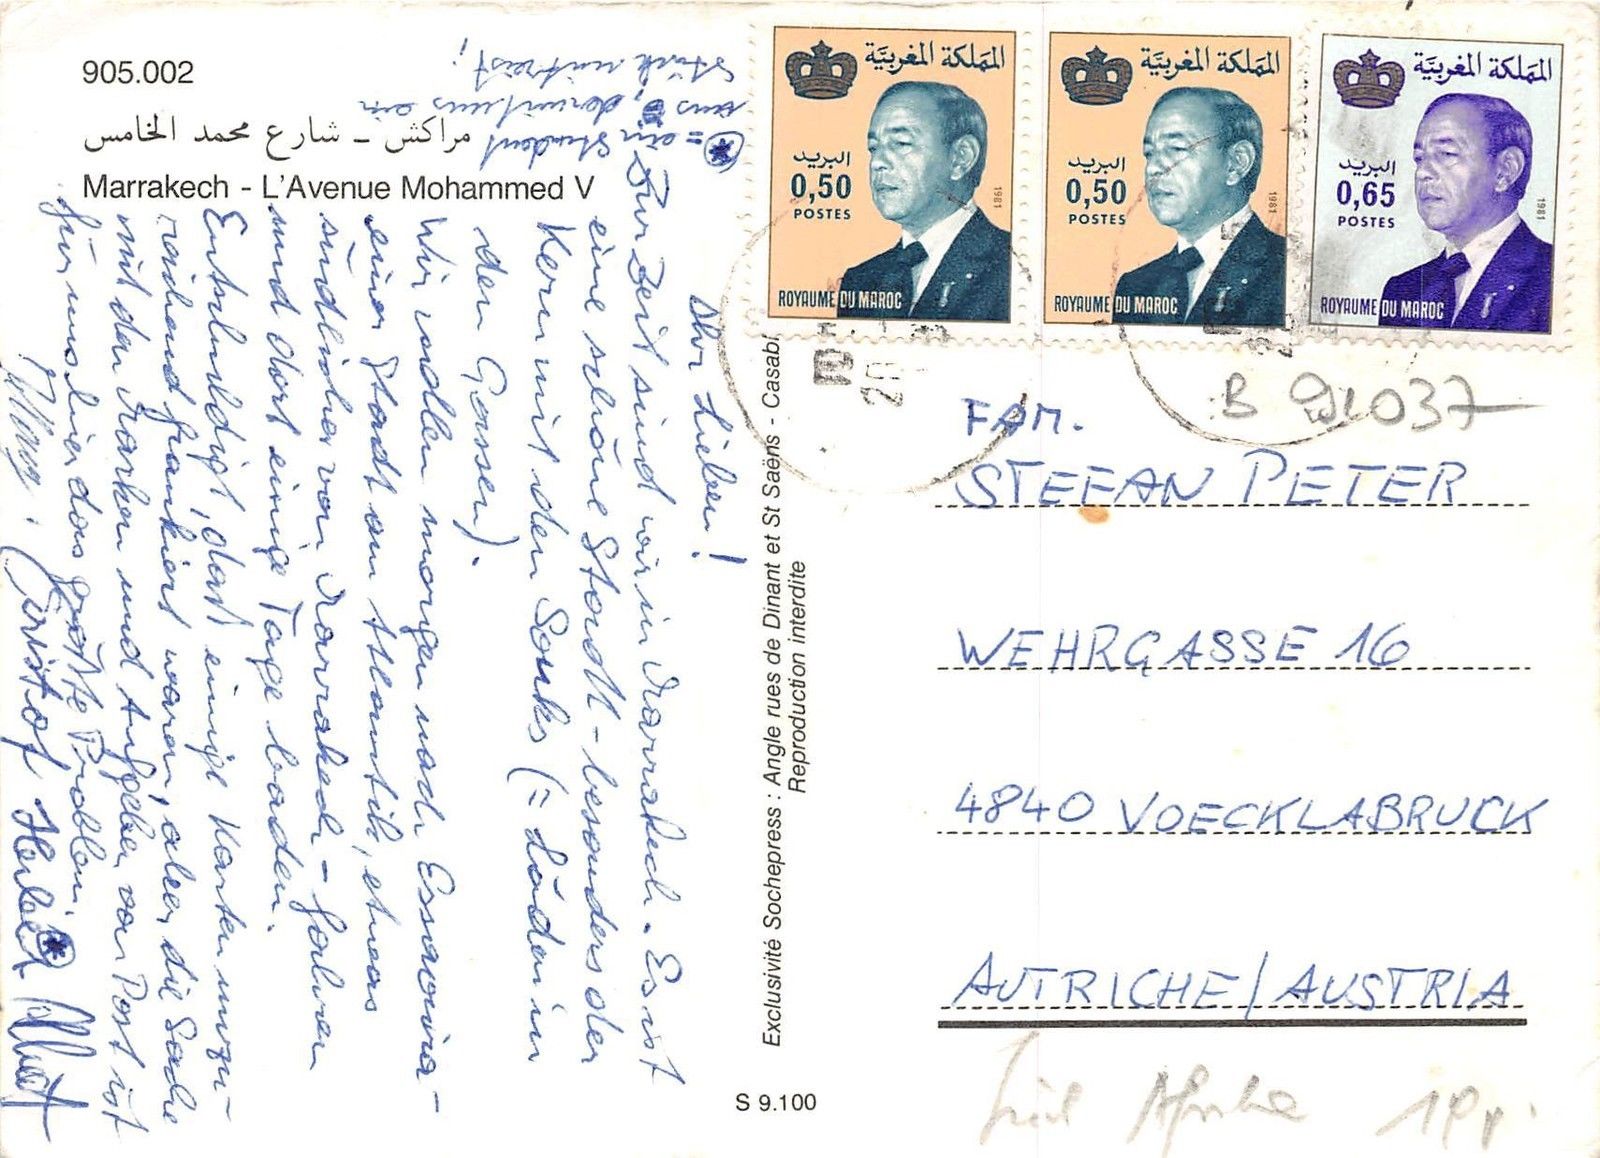 905.002
مراكش ـ شارع محمد الخامس
Marrakech - L'Avenue Mohammed V
Ihr Lieben!
Zur Zeit sind wir in Marrakech. Es ist
eine schöne Stadt - besonders der
Kern mit den Souks (= Läden in
den Gassen).
Wir wollen morgen nach Essaouira -
einer Stadt am Atlantik, etwas
südlicher von Marrakech - fahren
und dort einige Tage baden.
Entschuldigt, daß einige Karten unzu-
reichend frankiert waren, aber die Sache
mit den Marken und Aufgeben von Post ist
für uns hier das größte Problem.
Christof Herbert *
* = ein Student
aus, der mit uns ein
Stück mitreist;
Exclusivité Sochepress : Angle rues de Dinant et St Saëns - Casabl
Reproduction interdite
S 9.100
المملكة المغربية
البريد
0,50
POSTES
1981
ROYAUME DU MAROC
المملكة المغربية
البريد
0,50
POSTES
1981
ROYAUME DU MAROC
المملكة المغربية
البريد
0,65
POSTES
1981
ROYAUME DU MAROC
B 91037
FAM.
STEFAN PETER
WEHRGASSE 16
4840 VOECKLABRUCK
AUTRICHE/AUSTRIA
Afrika